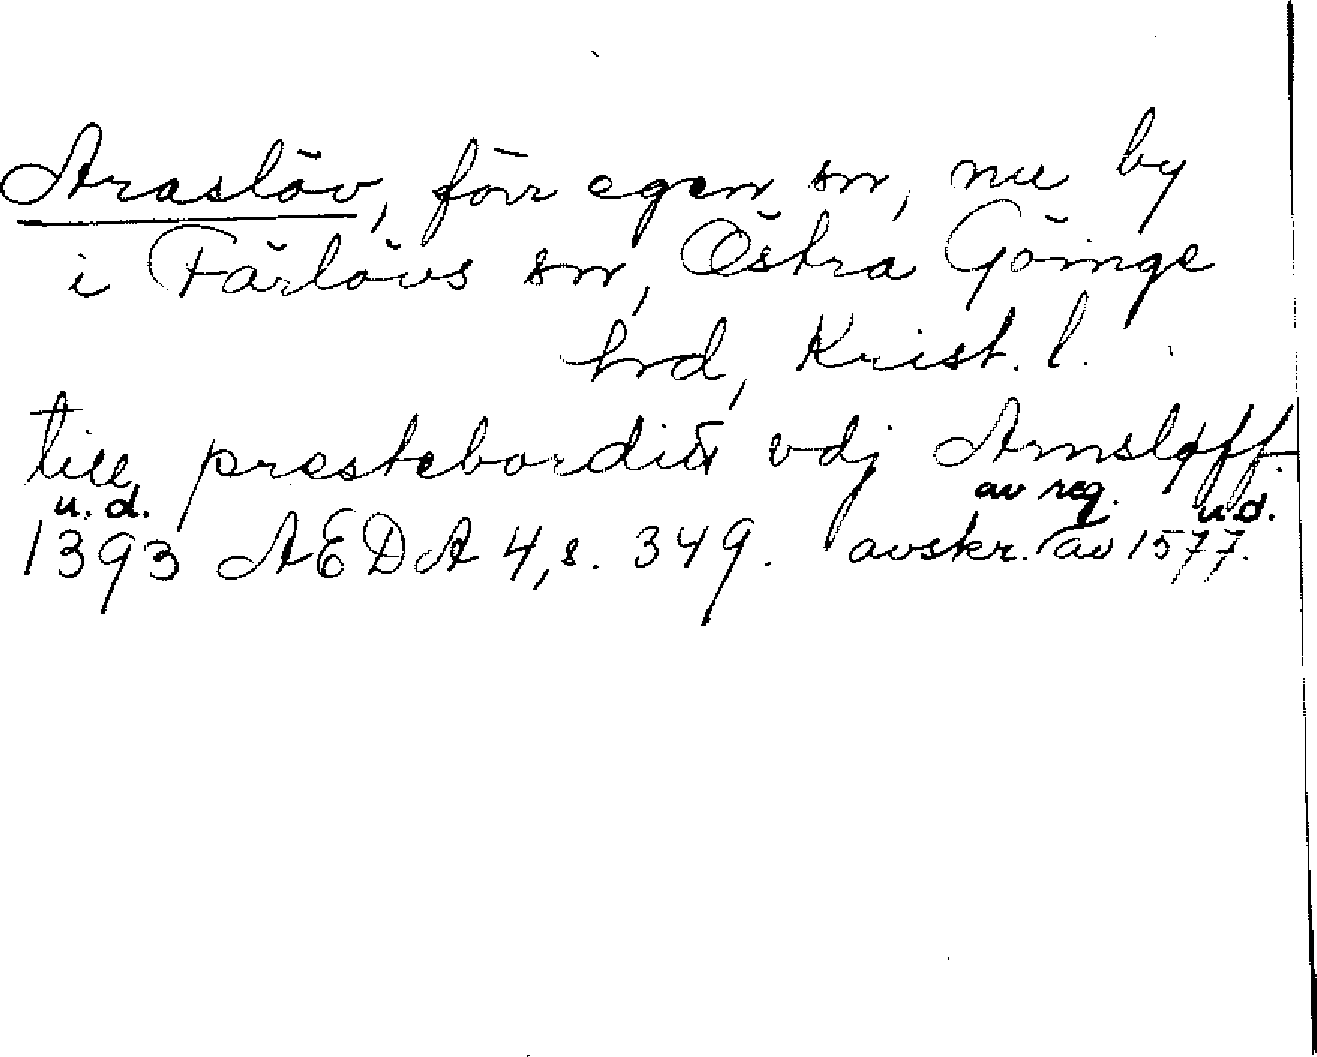 Araslöv, förr egen sn, nu by
i Färlövs sn, Östra Göinge
hrd, Krist. l.
till prestebordit vdj Arnsløff.
u. d. av reg. u. d.
1393 AEDA 4, s. 349. avskr. av 1577.